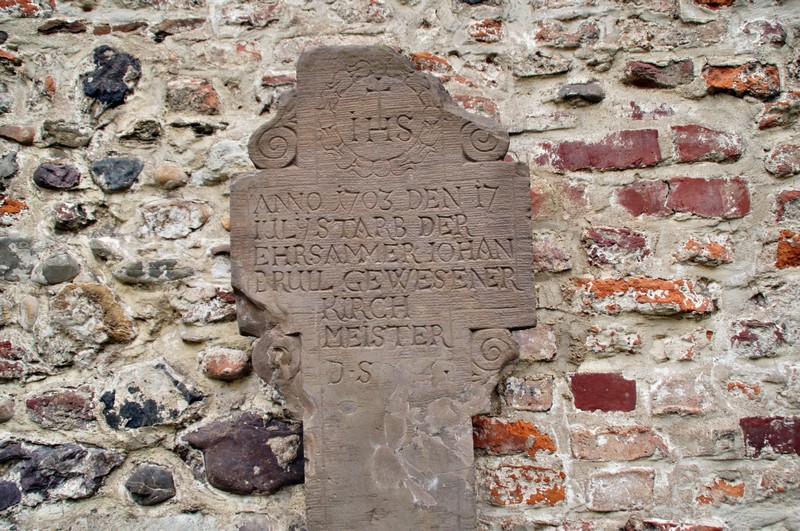 IHS
ANNO 1703 DEN 17
IULY STARB DER
EHRSAMMER IOHAN
BRUIL GEWESENER
KIRCH
MEISTER
D S